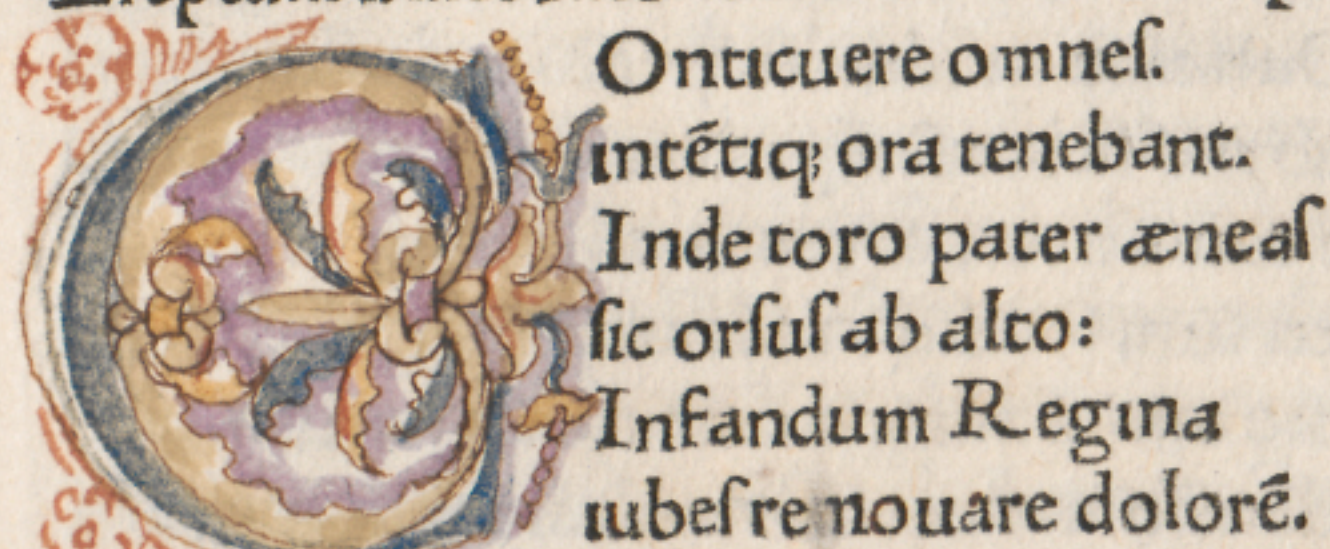 COnticuere omneſ.
intẽtiq; ora tenebant.
Inde toro pater æneaſ
ſic orſuſ ab alto:
Infandum Regina
iubeſ renouare dolorẽ.